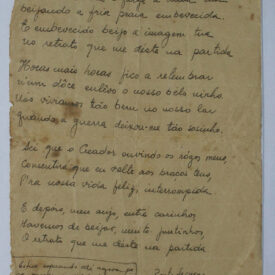 beijando a fria praia embevecida.
E embevecido beijo a imagem tua
no retrato que me deste na partida
Horas mais horas fico a relembrar
n'um doce enlevo o nosso belo ninho.
Nos viviamos tão bem no nosso lar
quando a guerra deixou-me tão sosinho.
Sei que o Creador ouvindo os rógos meus,
Consentirá que eu volte aos braços teus,
P'ra nossa vida feliz, interrompida.
E depois, meu anjo, entre carinhos
Havemos de beijar, muito juntinhos
O retrato que me deste na partida